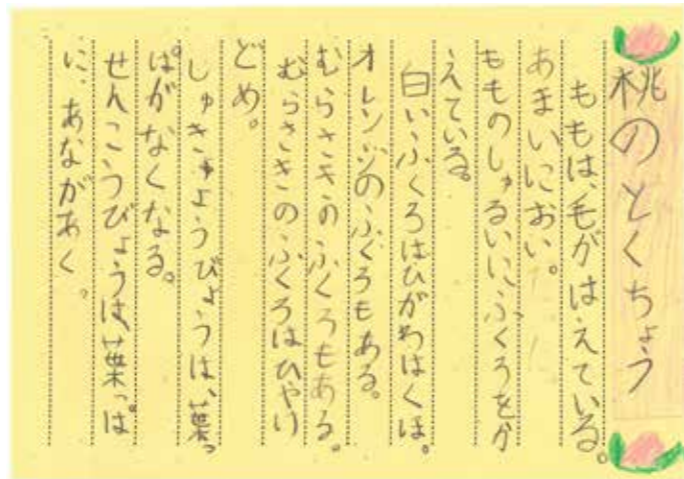 桃のとくちょう
ももは、毛がはえている。
あまいにおい。
もものしゅるいにふくろをか
えている。
白いふくろはひがわはくほ。
オレンジのふくろもある。
むらさきのふくろもある。
むらさきのふくろはひやけ
どめ。
しゅきょうびょうは、葉っ
ぱがなくなる。
せんこうびょうは、葉っぱ
に、あながあく。